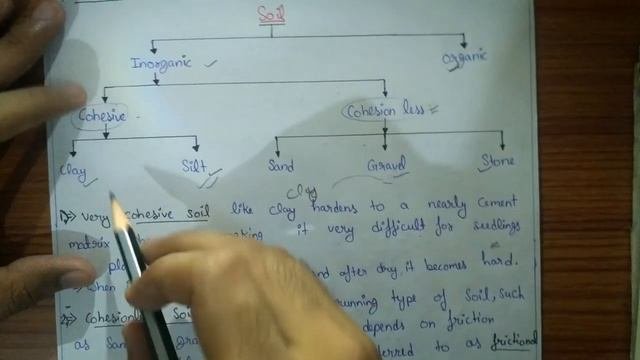 Soil
Inorganic Organic
Cohesive Cohesion less
Clay Silt Sand Gravel Stone
clay
1) very cohesive soil like clay hardens to a nearly cement
matrix making it very difficult for seedlings
and after dry, it becomes hard.
when running type of soil, such
2) depends on friction
as referred to as frictional